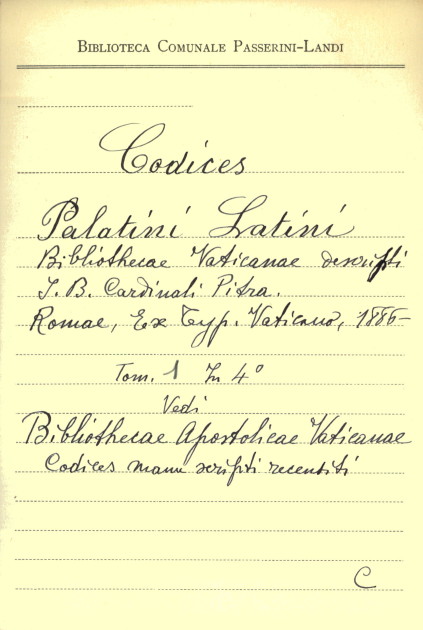 BIBLIOTECA COMUNALE PASSERINI-LANDI
Codices
Palatini Latini
Bibliothecae Vaticanae descripti
J. B. Cardinali Pitra.
Romae, Ex Typ. Vaticano, 1886-
Tom. 1 In 4°
Vedi
Bibliothecae Apostolicae Vaticanae
Codices manu scripti recensiti
C